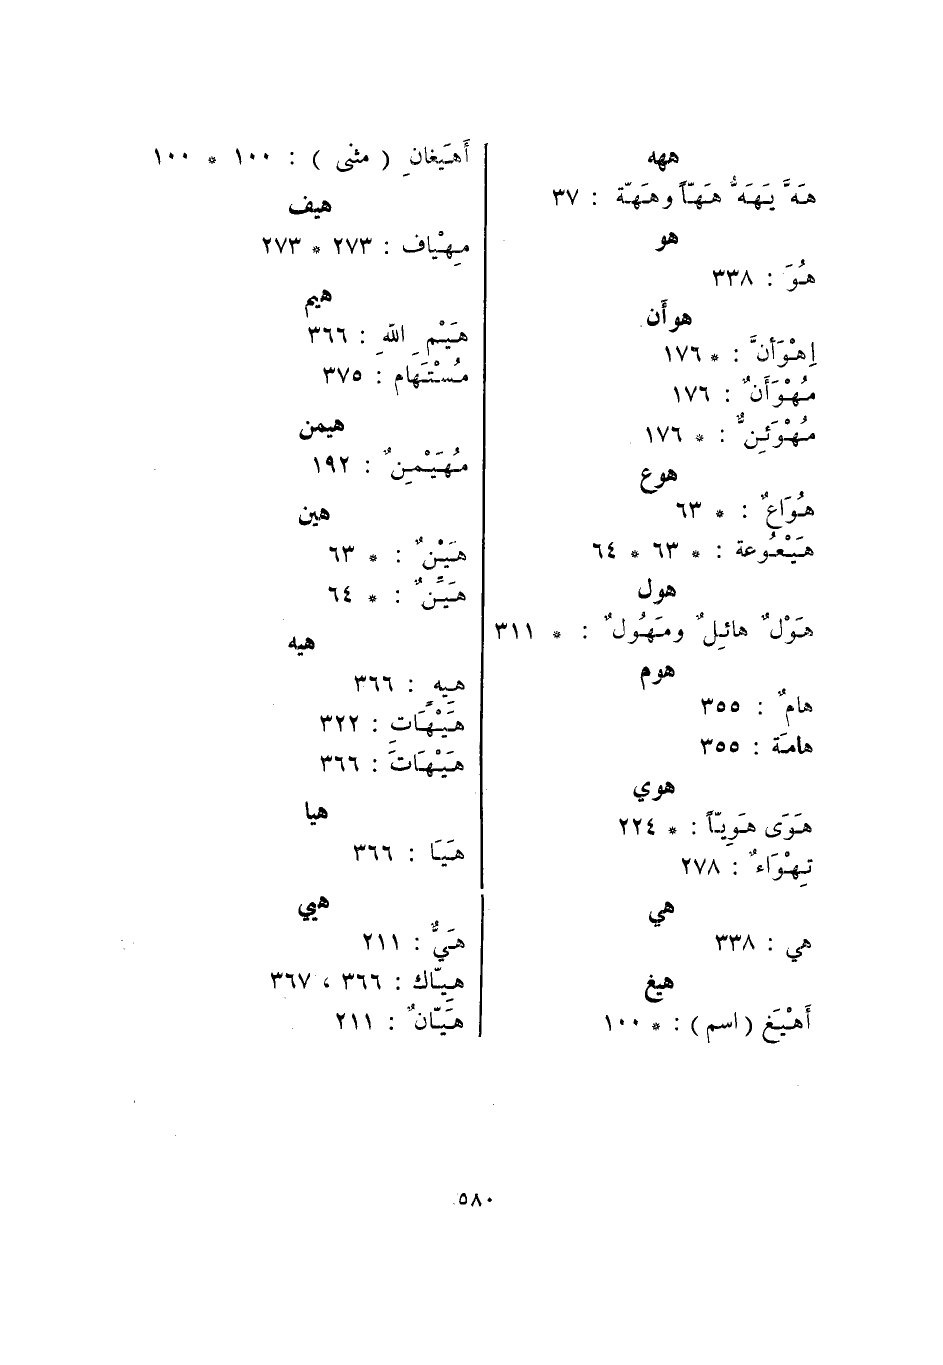 ههه
هَهَّ يَهَهُّ هَهّاً وهَهّة : ٣٧
هو
هُوَ : ٣٣٨
هوأن
اِهْوَأنَّ : * ١٧٦
مُهْوَأَنٌ : ١٧٦
مُهْوَئِنٌّ : * ١٧٦
هوع
هُوَاعٌ : * ٦٣
هَيْعُوعة : * ٦٣ * ٦٤
هول
هَوْلٌ هائِلٌ ومَهُولٌ : * ٣١١
هوم
هامٌ : ٣٥٥
هامَة : ٣٥٥
هوي
هَوَى هَوِيّاً : * ٢٢٤
تِهْوَاءٌ : ٢٧٨
هي
هي : ٣٣٨
هيغ
أَهْيَغ (اسم) : * ١٠٠
أَهْيَغانِ ( مثنى ) : ١٠٠ * ١٠٠
هيف
مِهْياف : ٢٧٣ * ٢٧٣
هيم
هَيْمِ اللّهِ : ٣٦٦
مُسْتَهَام : ٣٧٥
هيمن
مُهَيْمِنٌ : ١٩٢
هين
هَيْنٌ : * ٦٣
هَيِّنٌ : * ٦٤
هيه
هِيهِ : ٣٦٦
هَيْهَات : ٣٢٢
هَيْهَاتَ : ٣٦٦
هيا
هَيَا : ٣٦٦
هيي
هَيٌّ : ٢١١
هِيّاك : ٣٦٦ ، ٣٦٧
هَيّانٌ : ٢١١
٥٨٠